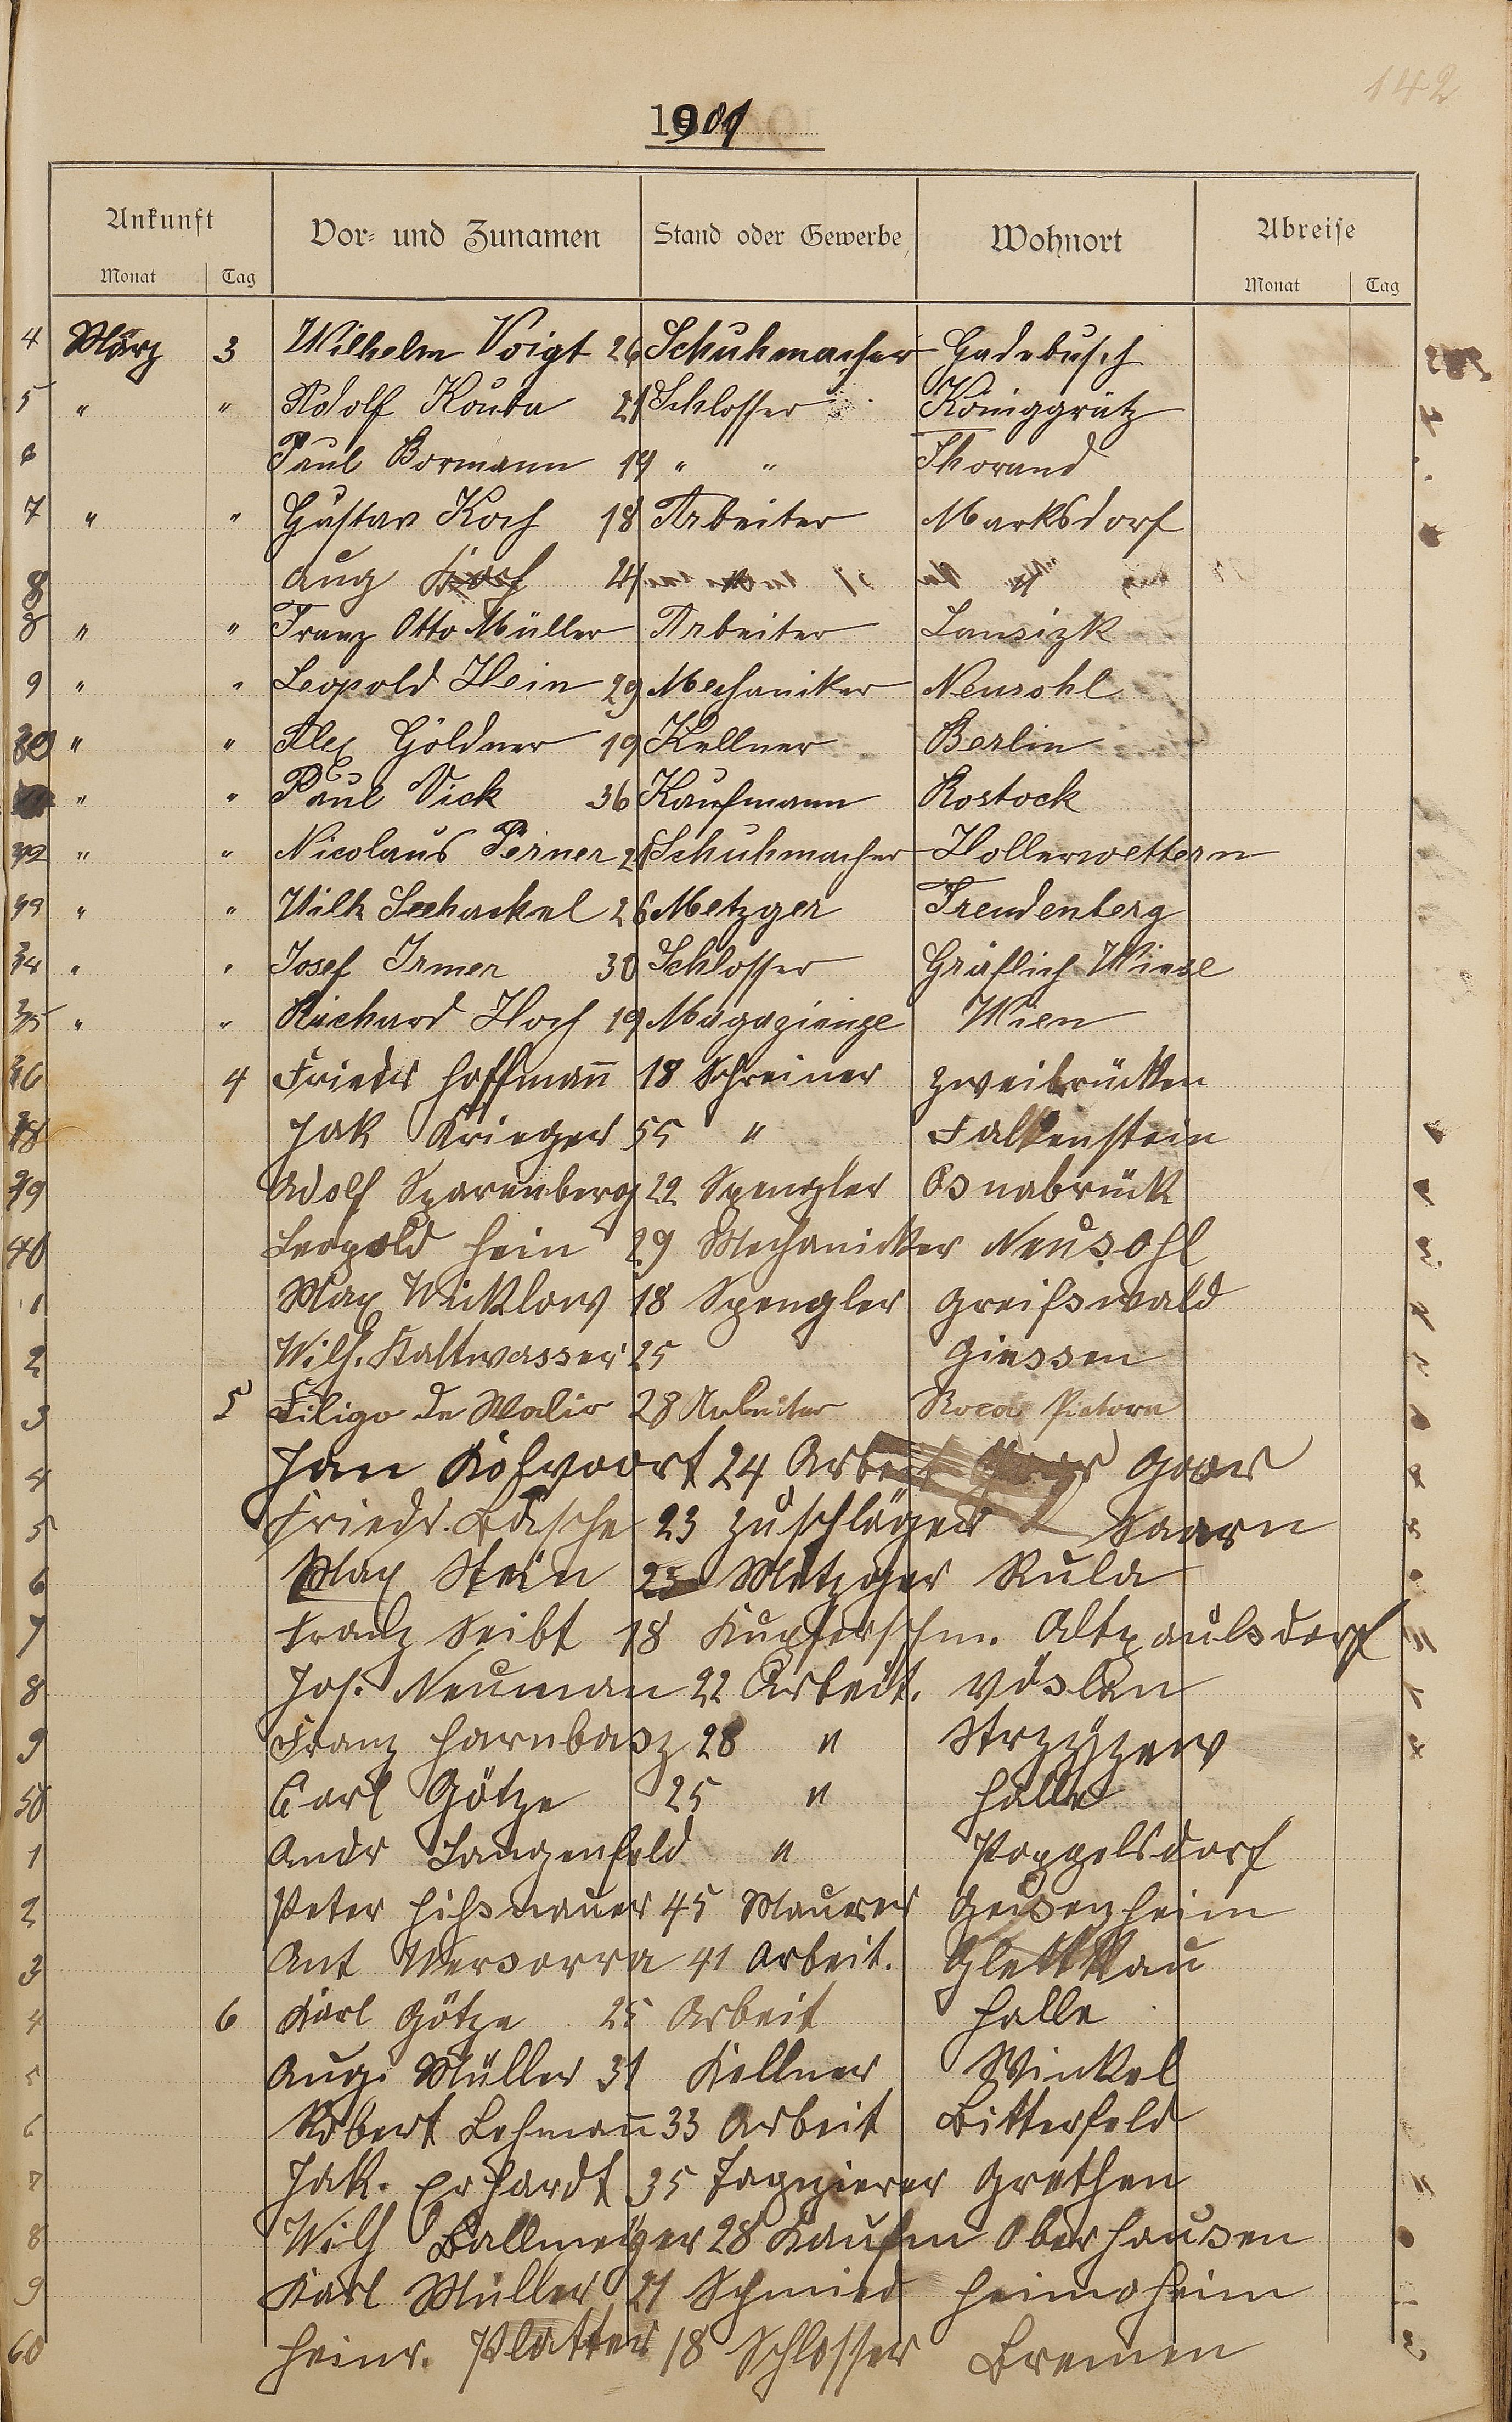 142
1901
Ankunft Vor- und Zunamen Stand oder Gewerbe Wohnort Abreise
Monat Tag Monat Tag
4 März 3 Wilhelm Voigt 26 Schuhmacher Gadebusch
5 " " Adolf Kouba 21 Schlosser Königgrätz
6 Paul Bormann 19 " " Thorand
7 " " Gustav Koch 18 Arbeiter Marksdorf
8 Aug 24
8 " " Franz Otto Müller Arbeiter Lausizk
9 " " Leopold Hein 29 Mechaniker Neusohl
30 " " Alex Göldner 19 Kellner Berlin
" " Paul Vick 36 Kaufmann Rostock
32 " " Nicolaus Perner Schuhmacher Hollerwettern
" " Wilh Seehackel 26 Metzger Freudenberg
34 " " Josef Irmer 30 Schlosser Gräflich Wiese
35 " " Richard Hoch 19 Wien
36 4 Friedr Hoffmann 18 Schreiner Zweibrücken
38 Jak Krieger 55 " Falkenstein
39 Adolf Sparenberg 22 Spengler Osnabrück
40 Leopold Hein 29 Mechanicker Neusohl
1 Max Wicklow 18 Spengler Greifswald
2 Wilh. Kaltwasser 25 Giessen
3 5 Filigo de Walir 28 Arbeiter Roca Pietora
4 Jan 24 Arbeit Goor
5 Friedr. Basche 23 Zuschläger Saarn
6 Max Stein 23 Metzger Rula
7 Franz Seibt 18 Kupferschm. Altpaulsdorf
8 Jos. Neuman 22 Arbeit. Vöslau
9 Franz Harnbasz 28 " Strzyzew
50 Carl Götze 25 " Halle
1 Andr Langenfeld " Poppelsdorf
2 Peter Hissnauer 45 Maurer Geisenheim
3 Ant Wersorra 41 Arbeit. Glettkau
4 6 Karl Götze 25 Arbeit Halle
5 Aug. Müller 31 Kellner Winkel
6 Robert Lehmann 33 Arbeit Bitterfeld
7 Jak. Erhardt 35 Tapezierer Grethen
8 Wilh Ballmeyer 28 Kaufm Oberhausen
9 Karl Müller 21 Schmied Heimsheim
60 Heinr. Platter 18 Schlosser Bremen